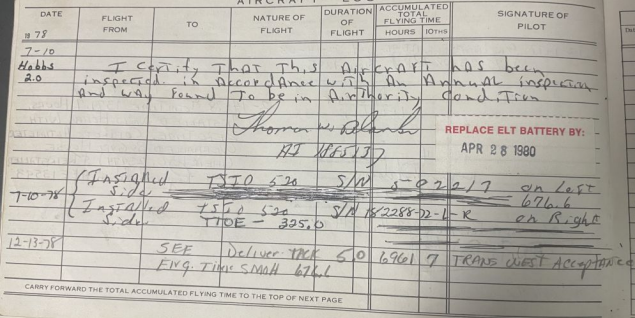 DATE FLIGHT FROM TO NATURE OF FLIGHT DURATION OF FLIGHT ACCUMULATED TOTAL FLYING TIME HOURS 10THS SIGNATURE OF PILOT
1978
7-10 I Certify That This Aircraft has been
Hobbs 2.0 inspected in Accordance with An Annual inspection
And was found To be in Airthority Condition
Thomas W.
AI
REPLACE ELT BATTERY BY:
APR 28 1980
Insigned TSIO 520 S/N on Left
7-10-78 Side 676.6
Installed TSIO 520 S/N on Right
Side TTOE - 325.0
12-13-78
SEE Deliver TACK 5.0 6961 7 TRANS WEST Acceptance
Eng. Time SMOH 676.6
CARRY FORWARD THE TOTAL ACCUMULATED FLYING TIME TO THE TOP OF NEXT PAGE